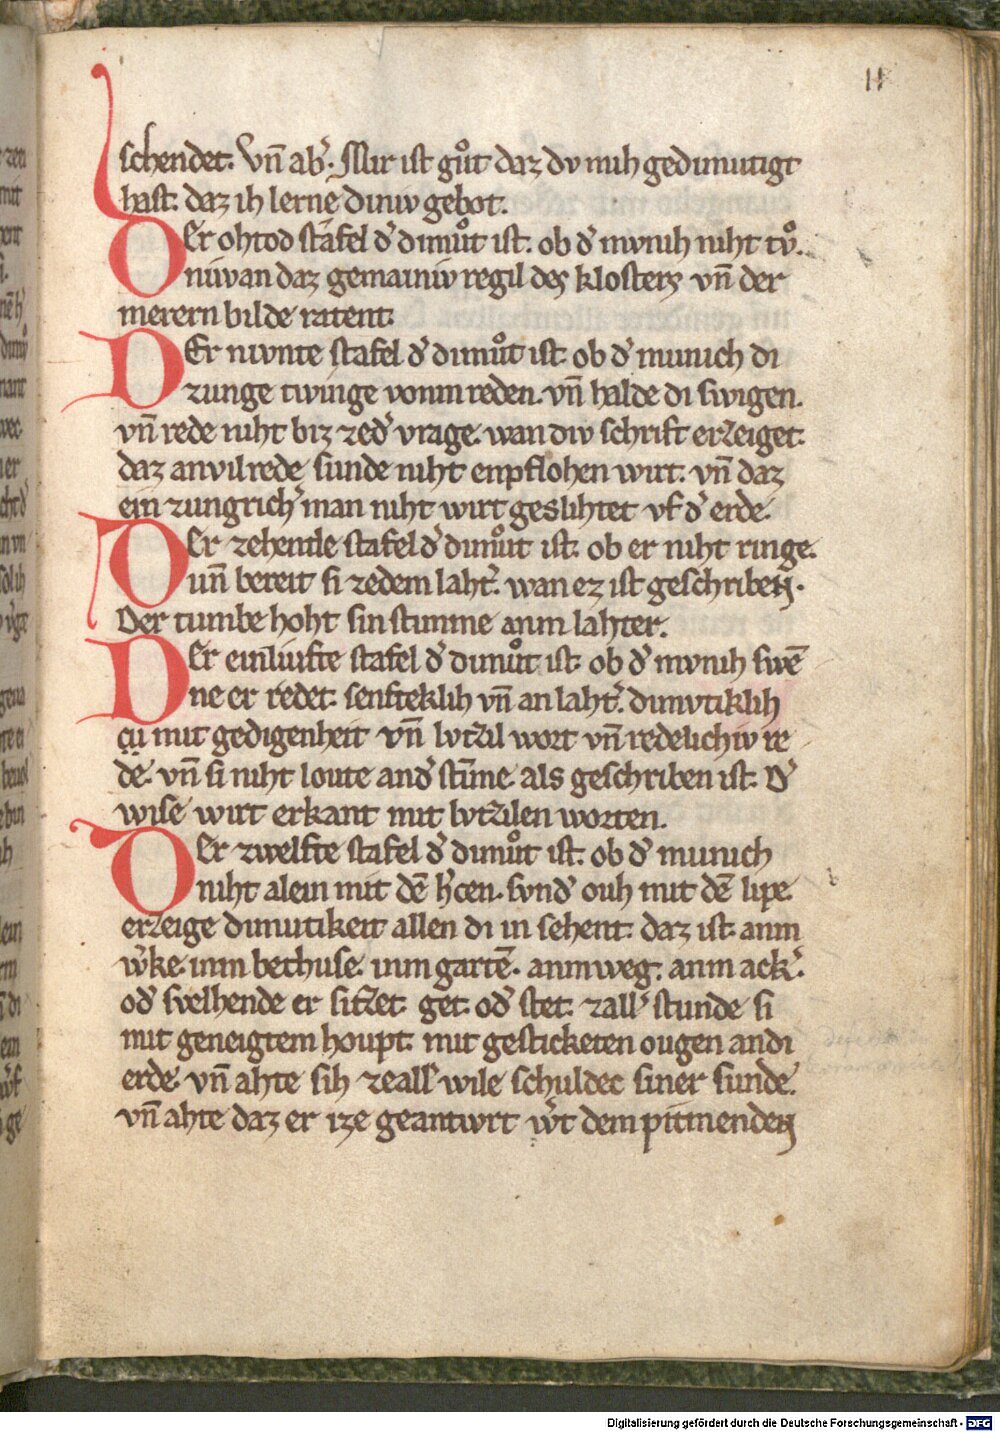 11
schendet. Vn̄ ab̾. Mir ist gůt daz dv mih gedimutigt
hast. daz ih lerne diniv gebot.
Der ohtod stafel d̾ dimůt ist. ob d̾ mvnih niht tv̊.
niwan daz gemainiv regil des klosters vn̄ der
merern bilde ratent.
Der nivnte stafel d̾ dimůt ist. ob d̾ munich di
zunge twinge vonm reden. vn̄ halde di swigen.
vn̄ rede niht biz zed̾ vrage. wan div schrift erzeiget.
daz anvil rede sunde niht enpflohen wirt. vn̄ daz
ein zungrich̾ man niht wirt geslihtet vf d̾ erde.
Der zehente stafel d̾ dimůt ist. ob er niht ringe.
unn̄ bereit si zedem laht̾. wan ez ist geschriben.
Der tumbe hoht sin stimme anm lahter.
Der einliufte stafel d̾ dimůt ist. ob d̾ mvnih swē
ne er redet. senfteklih vn̄ an laht̾. dimvtiklih
ců mit gedigenheit vn̄ lvtzil wort vn̄ redelichiv re
de. vn̄ si niht loute and̾ stīme. als geschriben ist. D̾
wise wirt erkant mit lvtzilen worten.
Der zwelfte stafel d̾ dimůt ist. ob d̾ munich
niht alein mit dē h̾cen. svnd̾ ouh mit dē lipe.
erzeige dimutikeit allen di in sehent. daz ist. anm
w̾ke. inm bethuse. inm gartē. anm weg. anm ack̾.
od̾ svelhende er sitzet. get. od̾ stet. zall̾ stunde si
mit geneigtem houpt. mit gesticketen ougen andi
erde. vn̄ ahte sih zeall̾ wile schuldec siner sunde.
vn̄ ahte daz er ize geantwrt w̾t dem pitmenden
Digitalisierung gefördert durch die Deutsche Forschungsgemeinschaft - DFG